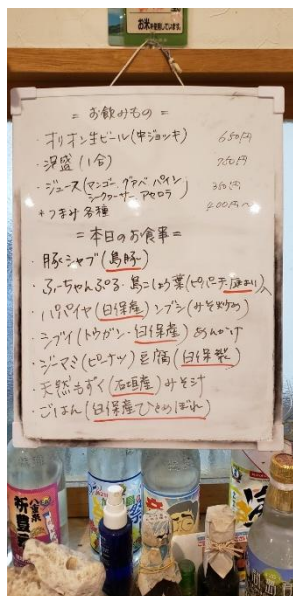 お米を使用しています。
= お飲みもの =
・オリオン生ビール(中ジョッキ) 650円
・泡盛(1合) 750円
・ジュース(マンゴー、グァバ、パイン 350円
シークヮーサー、アセロラ
+つまみ各種 400円〜
=本日のお食事=
・豚シャブ(島豚)
・ふーちゃんぷる・島こしょう葉(ピパーチ・庭まわり)入
・パパイヤ(白保産)ンブシ(みそ炒め)
・シブイ(トウガン・白保産)あんかけ
・ジーマミ(ピーナツ)豆腐(白保製)
・天然もずく(石垣産)みそ汁
・ごはん(白保産ひとめぼれ)
八重泉